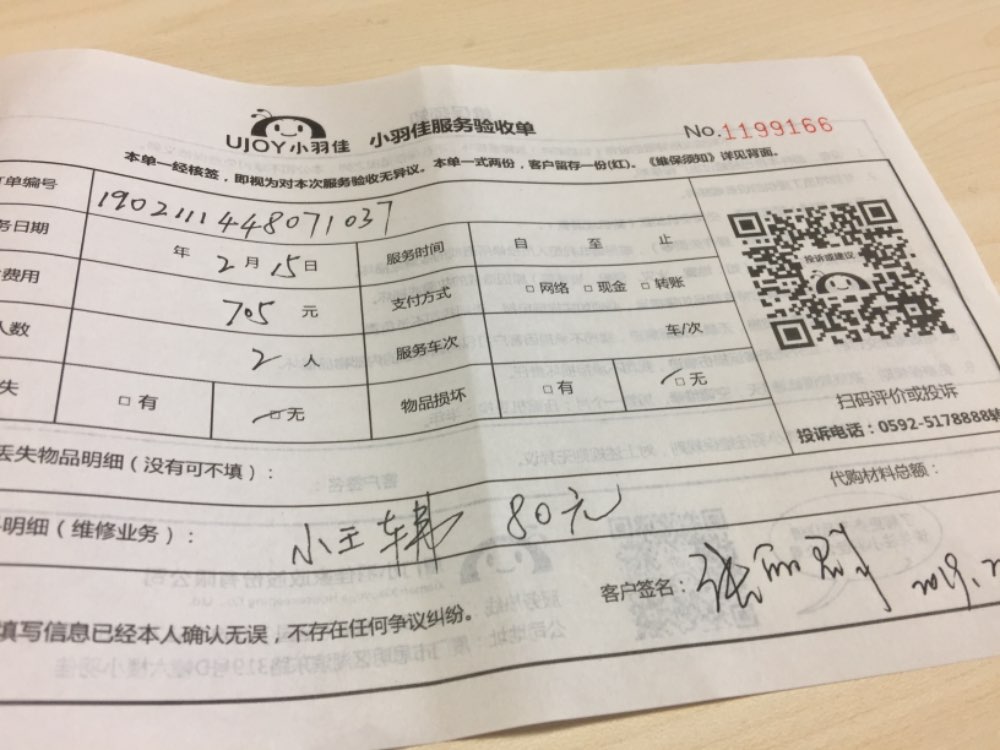 UJOY小羽佳 小羽佳服务验收单 No.1199166
本单一经核签，即视为对本次服务验收无异议。本单一式两份，客户留存一份(红)。《维保须知》详见背面。
单编号 1902111448071037
务日期 年 2月15日 服务时间 自 至 止
费用 705 元 支付方式 □网络 □现金 □转账
人数 2 人 服务车次 车/次
失 □有 □无 物品损坏 □有 □无
投诉或建议
扫码评价或投诉
投诉电话：0592-5178888转
丢失物品明细（没有可不填）：
代购材料总额：
明细（维修业务）： 80元
客户签名： 2019.2
填写信息已经本人确认无误，不存在任何争议纠纷。